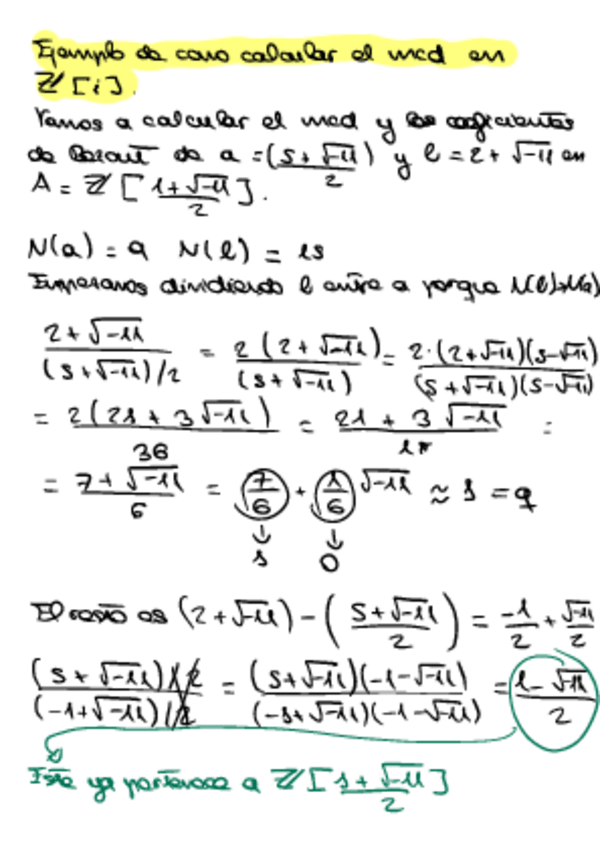 Ejemplo de como calcular el mcd en
Z[i].
Vamos a calcular el mcd y los coeficientes
de Bezout de a = (5+√-11)/2 y b = 2+√-11 en
A = Z[(1+√-11)/2].
N(a) = 9 N(b) = 15
Empezamos dividiendo b entre a porque N(b)>N(a)
(2+√-11)/((5+√-11)/2) = 2(2+√-11)/(5+√-11) = 2·(2+√-11)(5-√-11)/((5+√-11)(5-√-11))
= 2(21+3√-11)/36 = (21+3√-11)/18 =
= (7+√-11)/6 = 7/6 + 1/6 √-11 ≈ 1 = q
↓ ↓
1 0
El resto es (2+√-11) - ((5+√-11)/2) = -1/2 + √-11/2
(5+√-11)/2/(-1+√-11)/2 = (5+√-11)(-1-√-11)/((-1+√-11)(-1-√-11)) = (1-√-11)/2
Este ya pertenece a Z[(1+√-11)/2]